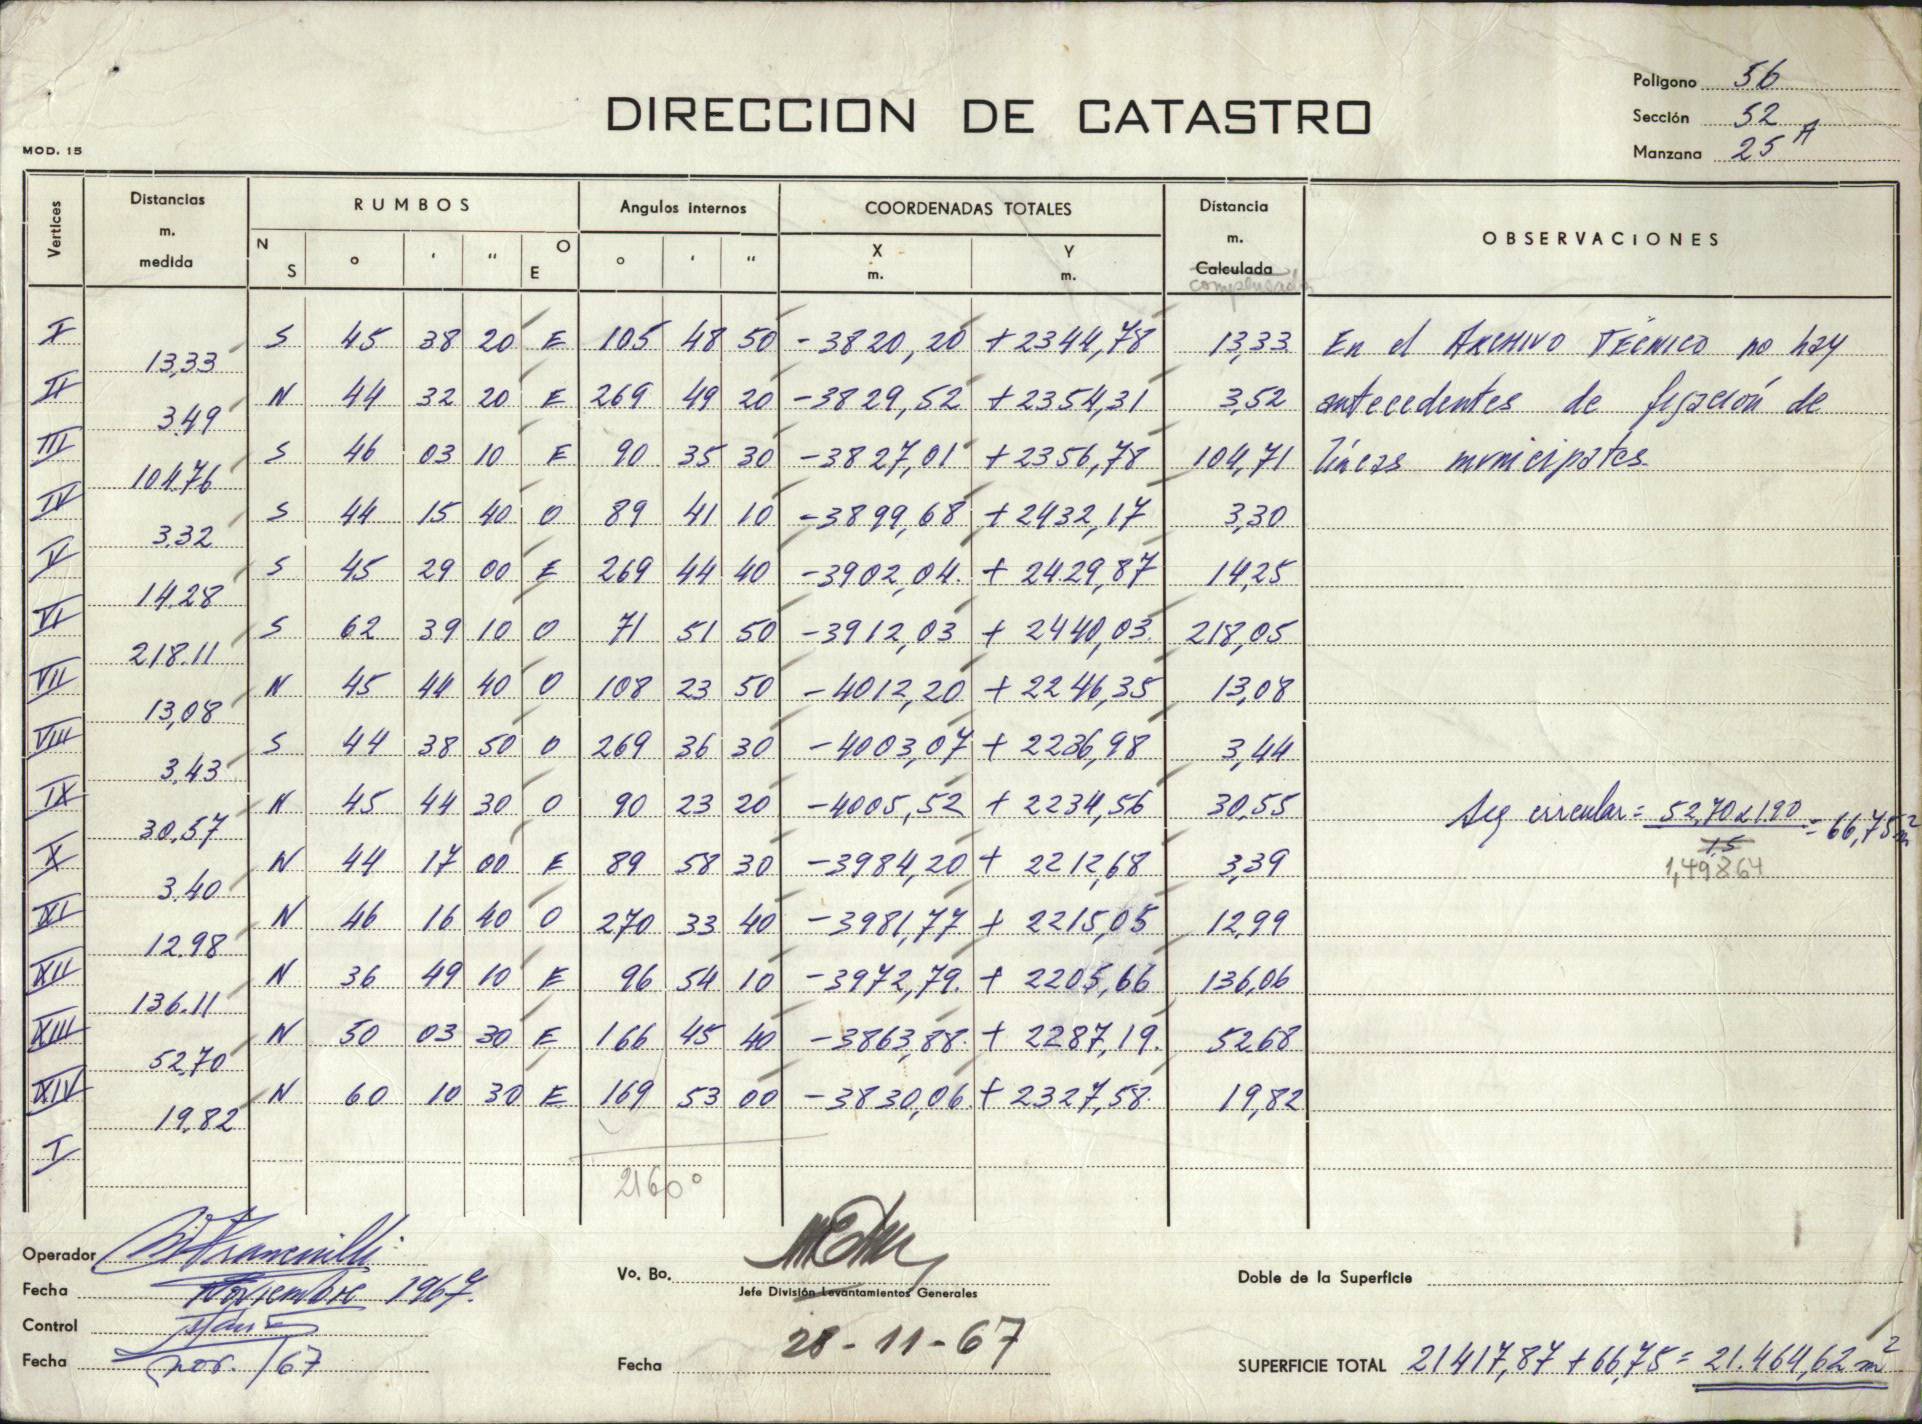 Polígono 56
DIRECCION DE CATASTRO
Sección 52
MOD. 15
Manzana 25 A
Vertices Distancias m. medida RUMBOS Angulos internos COORDENADAS TOTALES Distancia m. Calculada compensada OBSERVACIONES
N S ° ' " O E ° ' " X m. Y m.
I S 45 38 20 E 105 48 50 -3820,20 +2344,78 13,33 En el ARCHIVO TÉCNICO no hay
13,33
II N 44 32 20 E 269 49 20 -3829,52 +2354,31 3,52 antecedentes de fijación de
3.49
III S 46 03 10 E 90 35 30 -3827,01 +2356,78 104,71 líneas municipales.
104.76
IV S 44 15 40 O 89 41 10 -3899,68 +2432,17 3,30
3.32
V S 45 29 00 E 269 44 40 -3902,04 +2429,87 14,25
14.28
VI S 62 39 10 O 71 51 50 -3912,03 +2440,03 218,05
218.11
VII N 45 44 40 O 108 23 50 -4012,20 +2246,35 13,08
13,08
VIII S 44 38 50 O 269 36 30 -4003,07 +2236,98 3,44
3.43
IX N 45 44 30 O 90 23 20 -4005,52 +2234,56 30,55 Seg circular = 52,70 x 1.90 = 66,75 m²
30,57 1,5
X N 44 17 00 E 89 58 30 -3984,20 +2212,68 3,39 1,49864
3.40
XI N 46 16 40 O 270 33 40 -3981,77 +2215,05 12,99
12.98
XII N 36 49 10 E 96 54 10 -3972,79 +2205,66 136,06
136.11
XIII N 50 03 30 E 166 45 40 -3863,88 +2287,19 52,68
52,70
XIV N 60 10 30 E 169 53 00 -3830,06 +2327,58 19,82
19.82
I
2160°
Operador
Fecha Noviembre 1967.
Vo. Bo.
Doble de la Superficie
Jefe División Levantamientos Generales
Control
28-11-67
Fecha nov. /67
Fecha
SUPERFICIE TOTAL 21417,87 + 66,75 = 21.464,62 m²